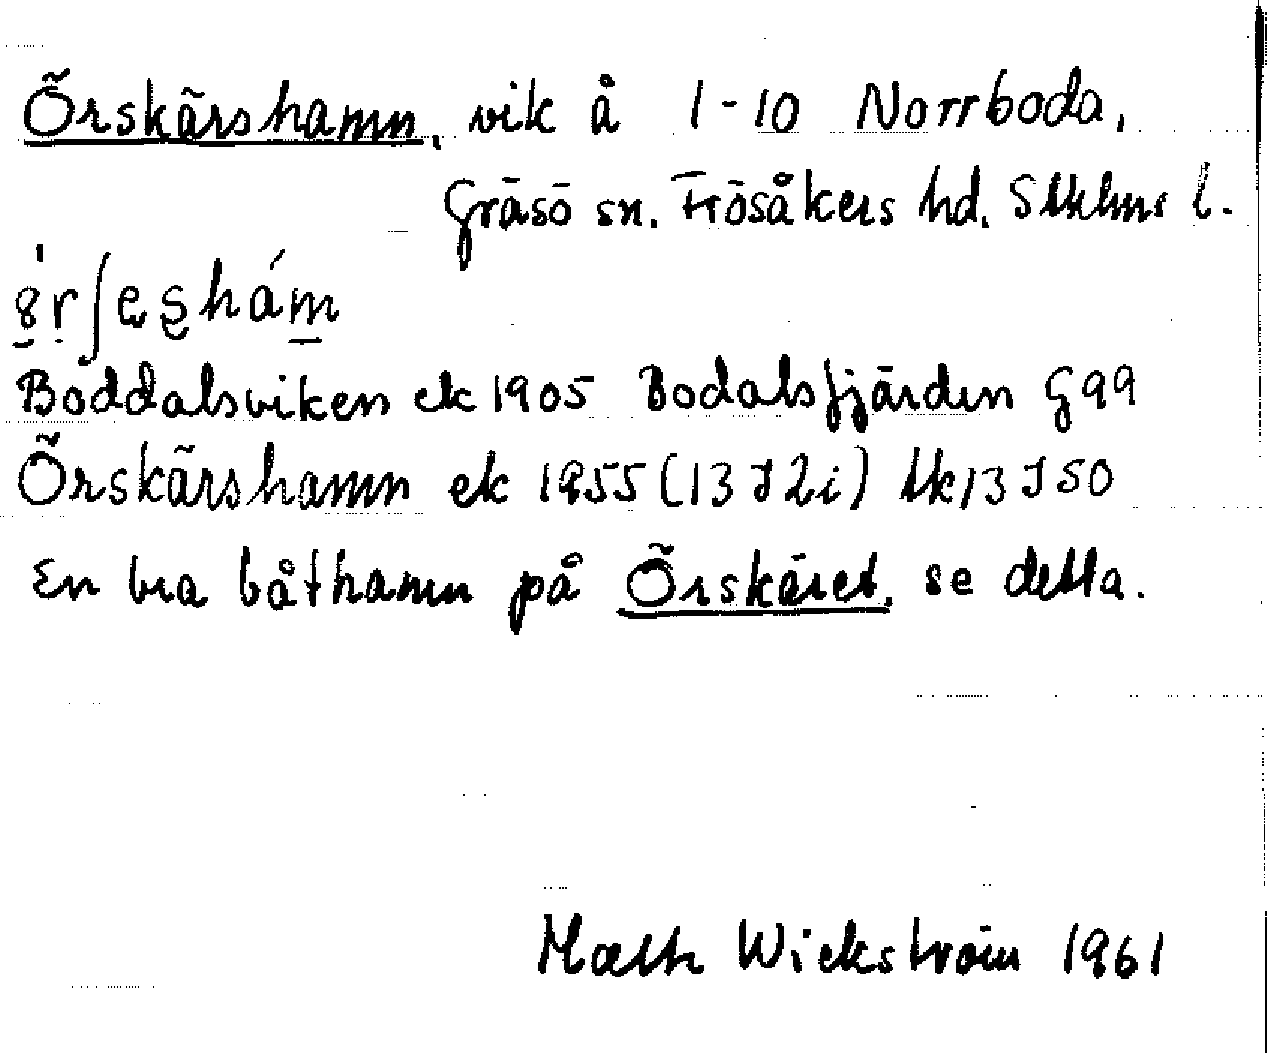 Örskärshamn, vik å 1-10 Norrboda,
Gräsö sn. Frösåkers hd. Sthlms l.
Boddalsviken ek 1905 Bodalsfjärden G99
Örskärshamn ek 1955 (13 I 2i) tk 13 I SO
En bra båthamn på Örskäret, se detta.
Math Wickström 1961